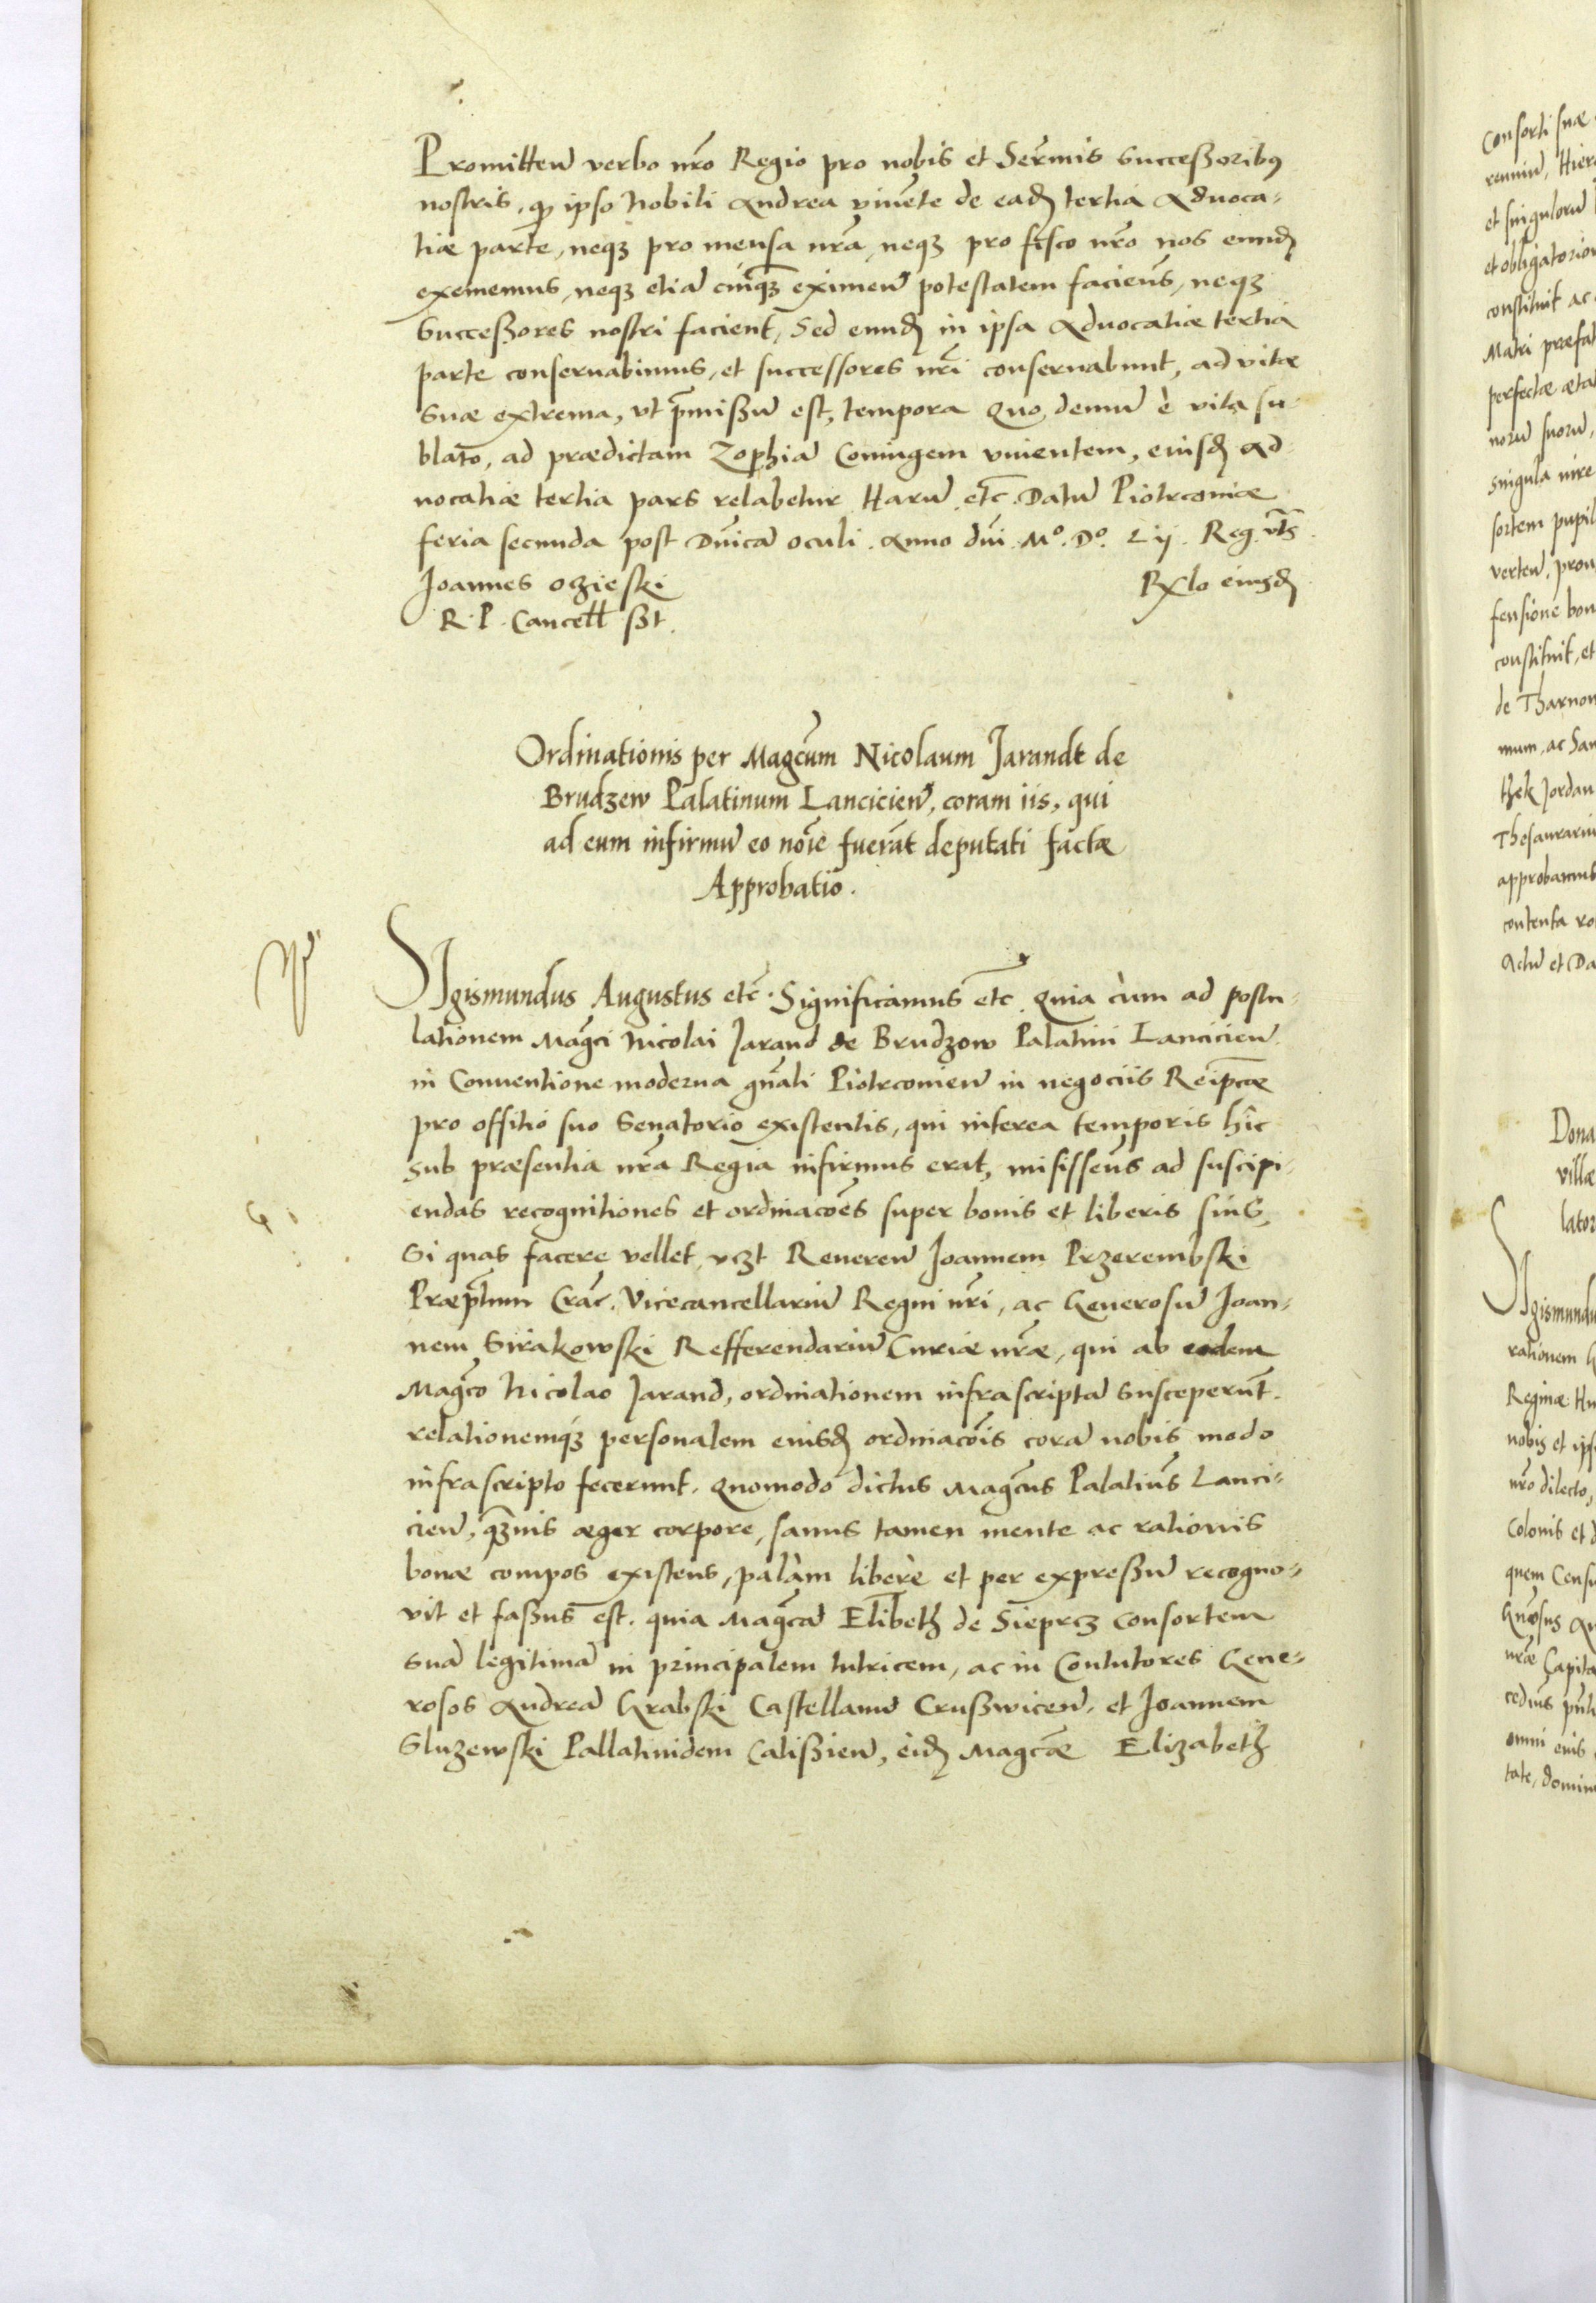 Promitteñ verbo nr̃o Regio pro nobis et Serm̃is Successoribus
nostris, ꝙ ipso Nobili Andrea vivẽte de eadẽ tertia Advoca-
tiæ parte, neqꝫ pro mensa nr̃a, neqꝫ pro fisco nr̃o nos eundẽ
eximemus, neqꝫ etiã cuiqꝫ eximeñ potestatem faciemus, neqꝫ
Successores nostri facient, Sed eundẽ in ipsa Advocatiæ tertia
parte conservabimus, et successores nr̃i conservabunt, ad vitæ
suæ extrema, vt p̃missũ est, tempora Quo demũ è vita su-
blato, ad prædictam Zophiã Coniugem viventem, eiusdẽ Ad
vocatiæ tertia pars relabetur Harũ etc̃. Datũ Piotrcoviæ
feria secunda post Dñicã Oculi. Anno dñi. Mº. Dº. Lij. Reg. vts̃.
Joannes Oczieski
Rx̃lo eiusdẽ
R. P. Cancell̃ sst.
Ordinationis per Magc̃um Nicolaum Jarandt de
Brudzew Palatinum Lancicieñ, coram iis, qui
ad eum infirmũ eo noĩe fuerãt deputati factæ
Approbatio.
Sigismundus Augustus etc̃. Significamus etc̃. Quia cùm ad postu-
lationem Magc̃i Nicolai Jarand de Brudzow Palatini Lancicieñ
in Conventione moderna gñali Piotrcovieñ in negociis Reipc̃æ
pro offitio suo Senatorio existentis, qui interea temporis hîc
sub præsentia nr̃a Regia infirmus erat, misissemus ad suscipi-
endas recognitiones et ordinacoẽs super bonis et liberis suis
Si quas facere vellet, vczt Revereñ Joannem Przerembski
Præp̃tum Crac̃. Vicecancellariũ Regni nr̃i, ac Generosũ Joan-
nem Sirakowski Refferendariũ Curiæ nr̃æ, qui ab eodem
Magc̃o Nicolao Jarand, ordinationem infrascriptã susceperũt.
relationemqꝫ personalem eiusdẽ ordinacoĩs corã nobis modo
infrascripto fecerunt. Quomodo dictus Magc̃us Palatinus Lanci-
cieñ, qꝫvis æger corpore, sanus tamen mente ac rationis
bonæ compos existens, palàm liberè et per expressũ recogno-
vit et fassus est. quia Magc̃ã Elĩbeth de Sieprcz Consortem
suã legitimã in principalem tutricem, ac in Contutores Gene-
rosos Andreã Krabski Castellanũ Crusswiceñ. et Joannem
Sluzewski Pallatinidem Calissieñ, eidẽ Magc̃æ Elizabeth
Consorti suæ
et singulorũ
et obligatorio
constituit ac
Matri præfat
perfectæ ætat
norũ suorũ,
singula iure
sortem pupil
verteñ, prou
fensione bon
constituit, et
de Tharnow
mum, ac San
thek Jordan
Thesaurariu
approbamus
contenta ro
Actũ et Da
Dona
villæ
lator
Sigismundu
rationem
Reginæ Hu
nobis et ips
nr̃o dilecto,
Colonis et d
quem Censu
nr̃æ Capita
omni eius
tate, domin